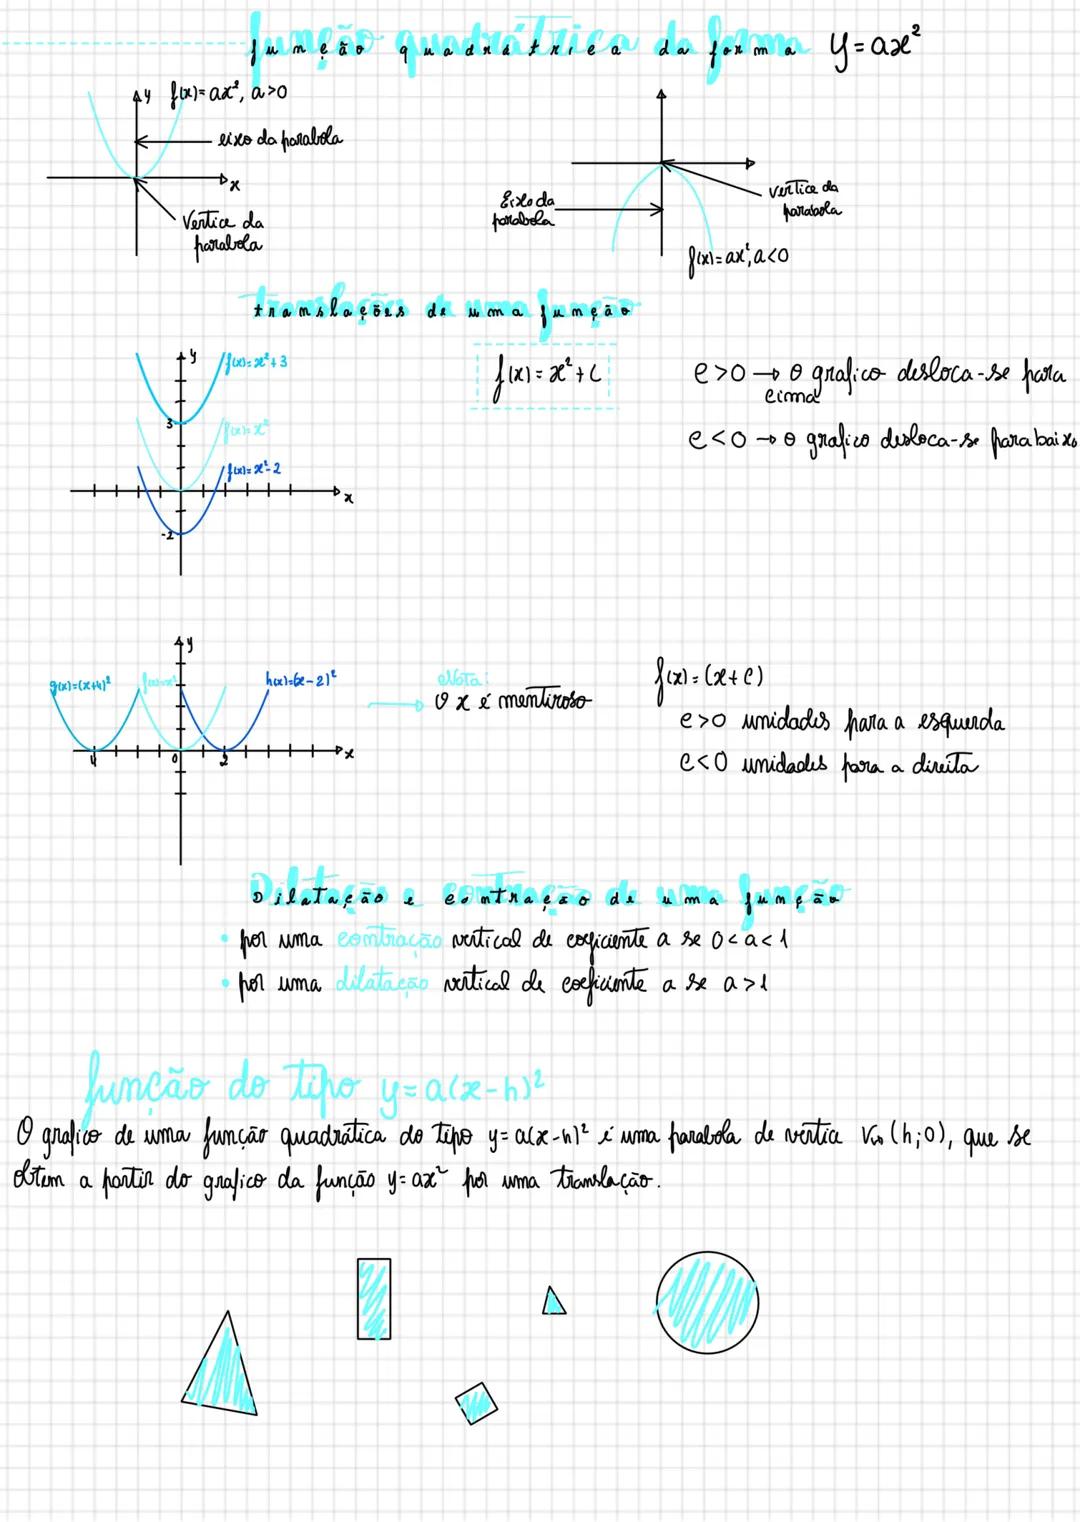 função quadrátrica da forma y=ax²
y f(x)=ax², a>0
eixo da parabola
x
Vertice da
parabola
Eixo da
parabola
vertice da
parabola
f(x)=ax², a<0
translações de uma função
y f(x)=x²+3
3
f(x)=x²
f(x)=x²-2
x
-2
f(x)=x²+c
c>0 → o grafico desloca-se para
cima
c<0 → o grafico desloca-se para baixo
y
g(x)=(x+4)² f(x)=x² h(x)=(x-2)²
4 0 2 x
Nota:
O x é mentiroso
f(x)=(x+c)
c>0 unidades para a esquerda
c<0 unidades para a direita
Dilatação e contração de uma função
• por uma contração vertical de coeficiente a se 0<a<1
• por uma dilatação vertical de coeficiente a se a>1
função do tipo y=a(x-h)²
O grafico de uma função quadrática do tipo y=a(x-h)² é uma parabola de vertice (h;0), que se
obtem a partir do grafico da função y=ax² por uma translação.